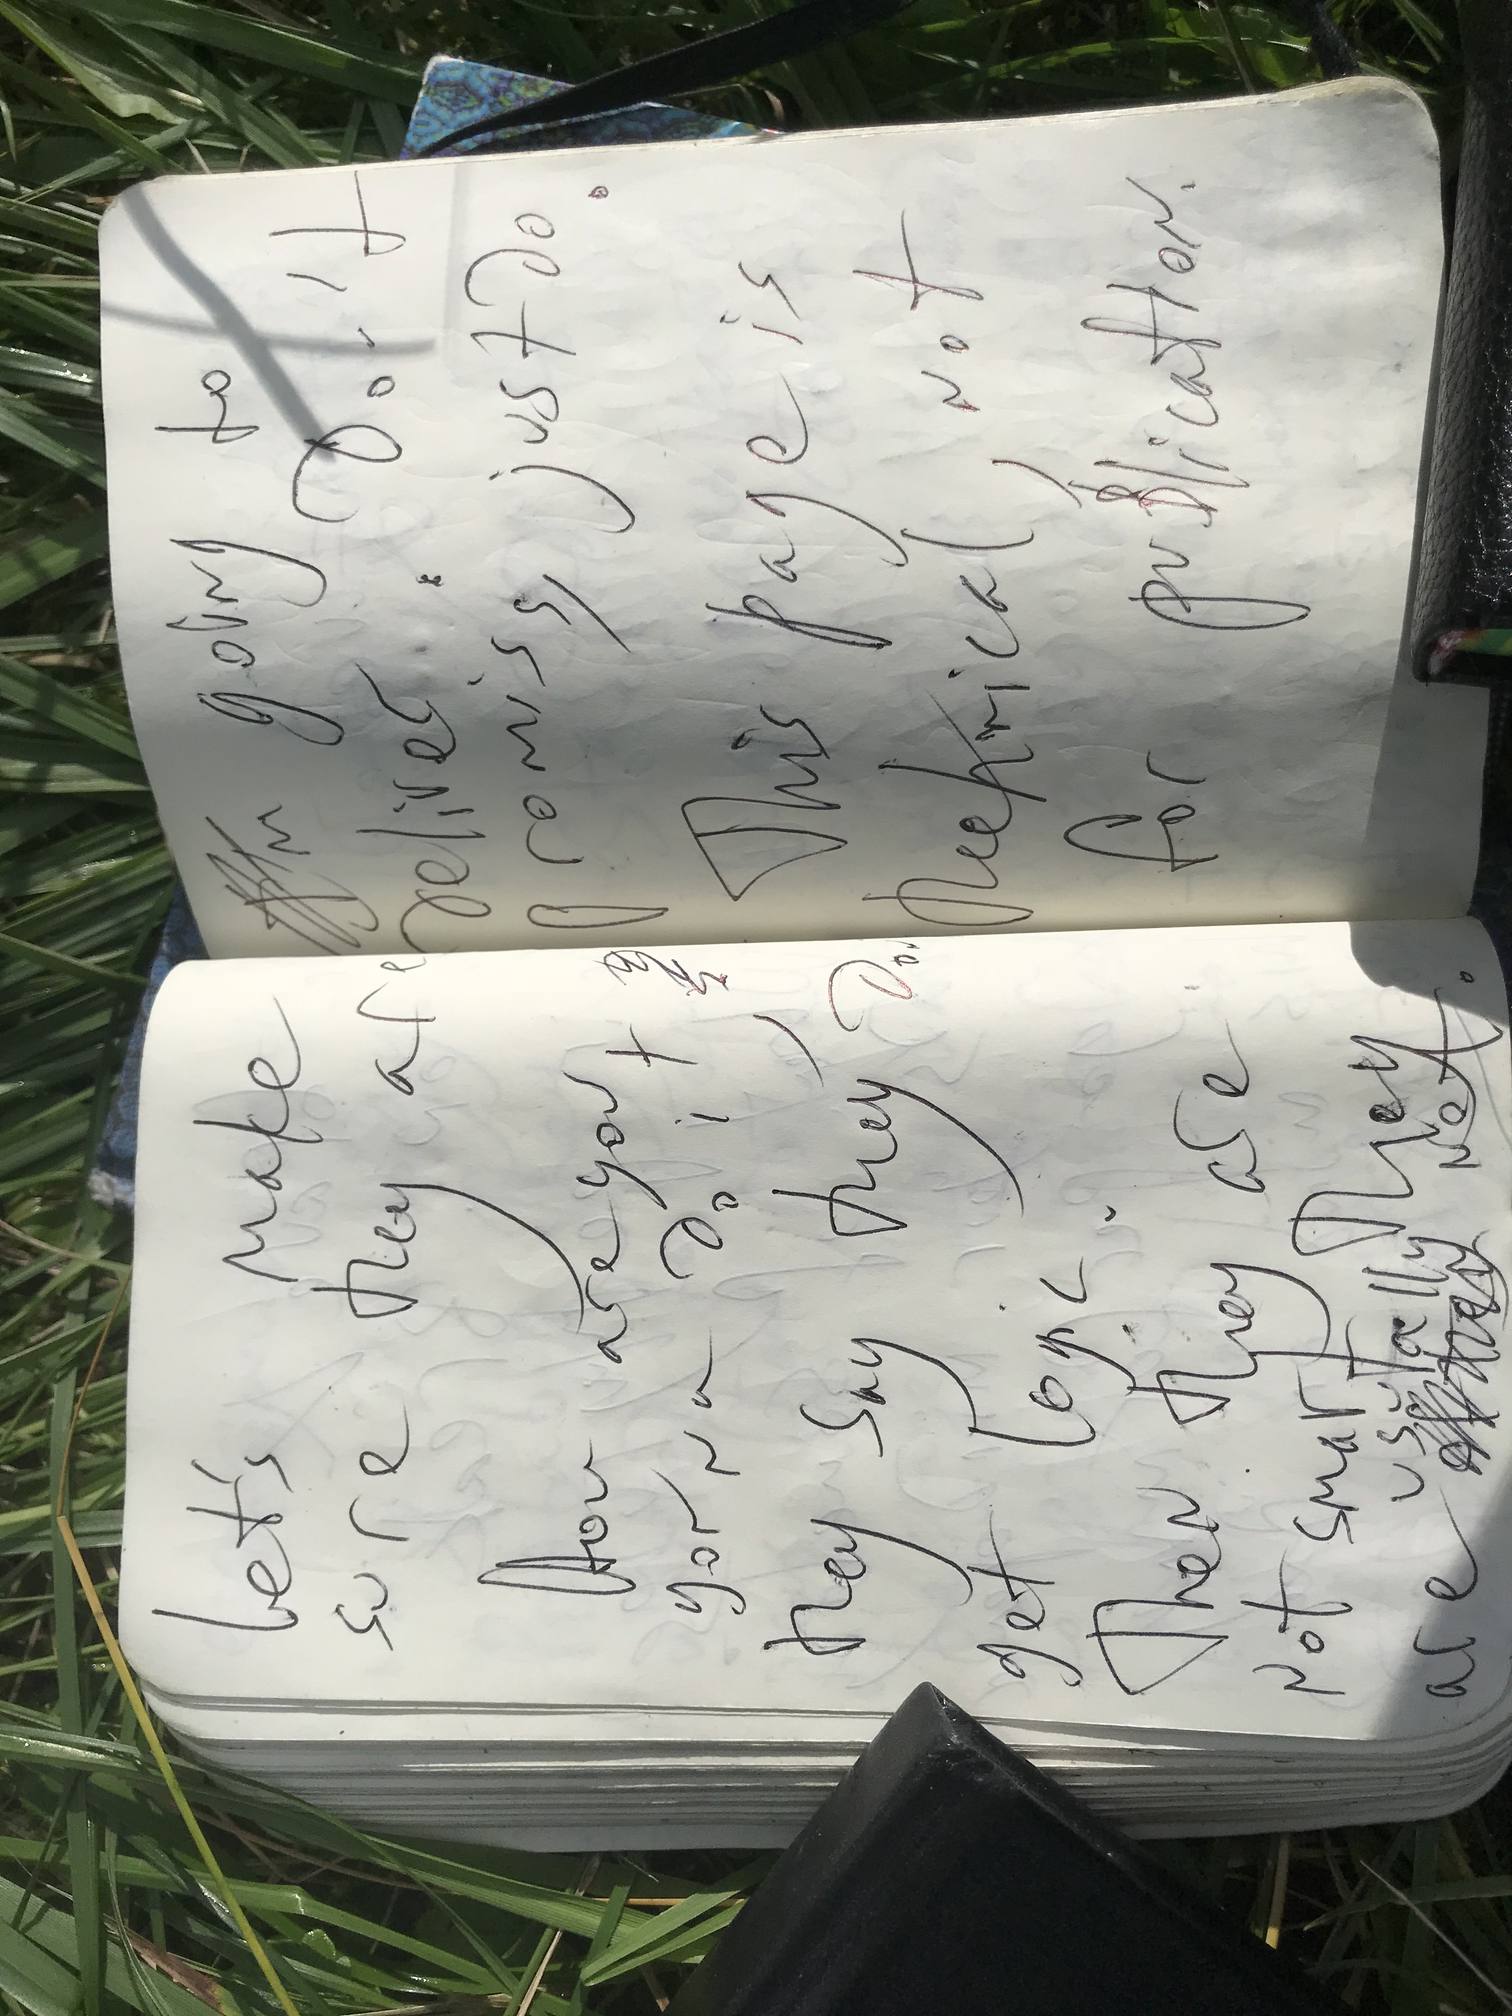 Let's make
sure they are
How are you
gonna do it,
they say they do.
get logic.
Then they are
not smart They
are usually not.
going to
deliver. Do it
promiss, just do.
This page is
thetrical, not
for publication.